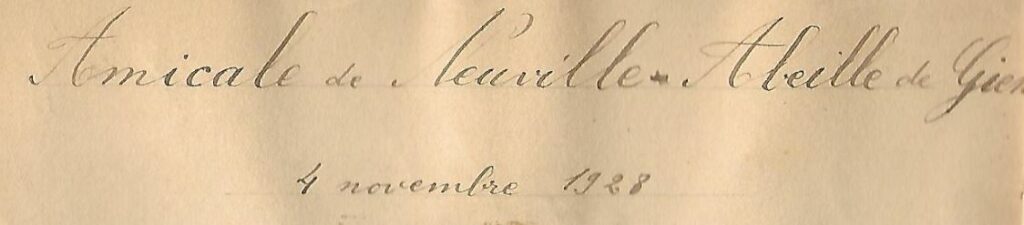 Amicale de Neuville - Abeille de Gien
4 novembre 1928